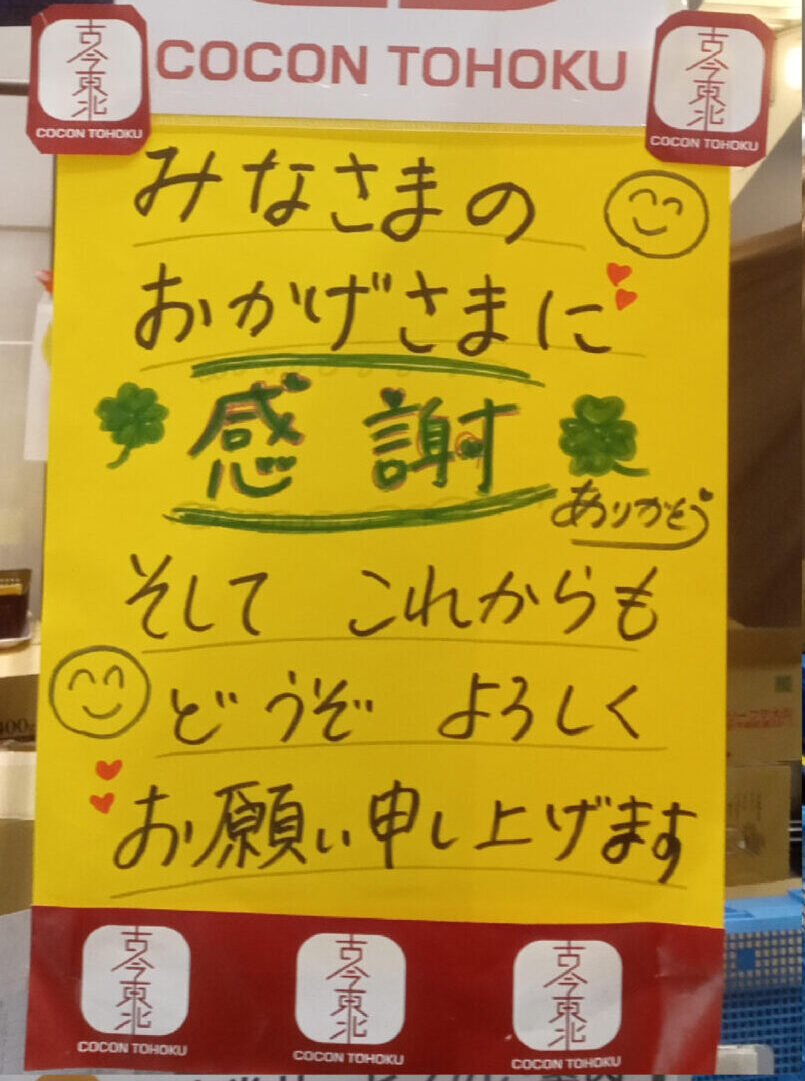 古今東北
COCON TOHOKU
COCON TOHOKU
古今東北
COCON TOHOKU
みなさまの
おかげさまに
感謝
ありがとう
そして これからも
どうぞ よろしく
お願い申し上げます
古今東北
COCON TOHOKU
古今東北
COCON TOHOKU
古今東北
COCON TOHOKU